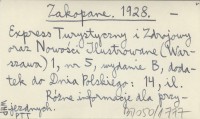 Zakopane. 1928. –
Express Turystyczny i Zdrojowy
oraz Nowości Ilustrowane (War-
szawa) 1, nr 5, wydanie B, doda-
tek do Dnia Polskiego: 14, il.
Różne informacje dla przy-
jezdnych.